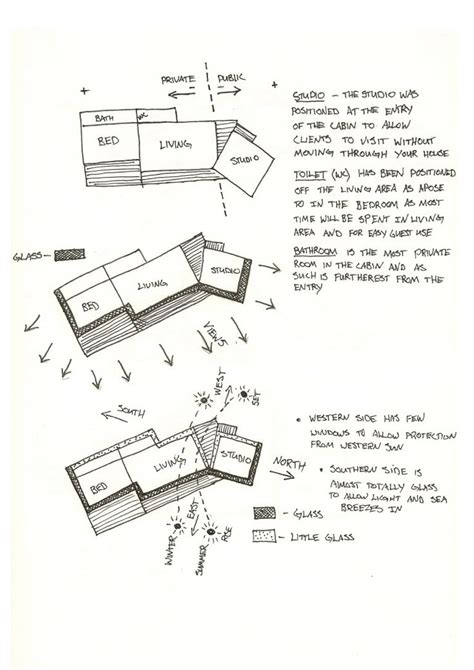 PRIVATE PUBLIC
BATH WC
BED LIVING STUDIO
STUDIO - THE STUDIO WAS
POSITIONED AT THE ENTRY
OF THE CABIN TO ALLOW
CLIENTS TO VISIT WITHOUT
MOVING THROUGH YOUR HOUSE
TOILET (WC) HAS BEEN POSITIONED
OFF THE LIVING AREA AS APOSE
TO IN THE BEDROOM AS MOST
TIME WILL BE SPENT IN LIVING
AREA AND FOR EASY GUEST USE
BATHROOM IS THE MOST PRIVATE
ROOM IN THE CABIN AND AS
SUCH IS FURTHEREST FROM THE
ENTRY
GLASS -
BED LIVING STUDIO
VIEWS
SOUTH
WEST
SET
BED LIVING STUDIO
NORTH
EAST
WINTER
SUMMER
RISE
• WESTERN SIDE HAS FEW
WINDOWS TO ALLOW PROTECTION
FROM WESTERN SUN
• SOUTHERN SIDE IS
ALMOST TOTALLY GLASS
TO ALLOW LIGHT AND SEA
BREEZES IN
- GLASS
- LITTLE GLASS